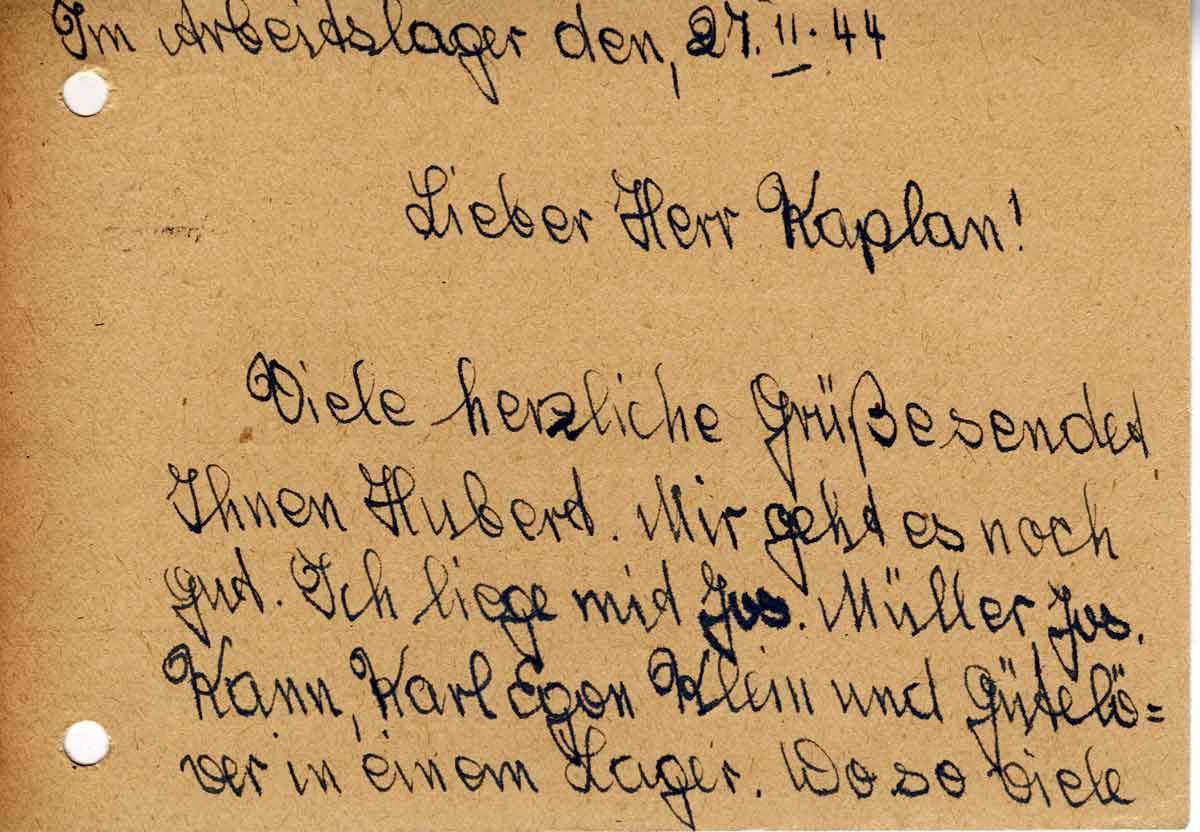 Im Arbeitslager den, 27. II. 44
Lieber Herr Kaplan!
Viele herzliche Grüße sendet
Ihnen Hubert. Mir geht es noch
gut. Ich liege mit Jos. Müller, Jos.
Kann, Karl Egon Klein und Gütelö=
ver in einem Lager. Wo so viele